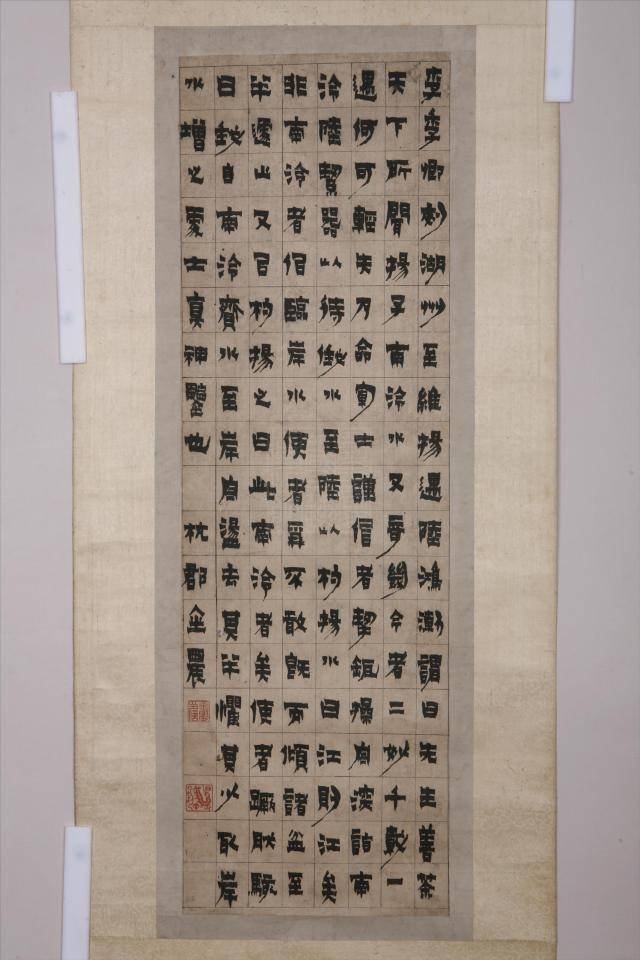 李季卿刺湖州至維揚遇陸鴻漸謂曰先生善茶
天下所聞揚子南泠水又奇絕今者二妙千載一
遇何可輕失乃命軍士謹信者挈缾操舟深詣南
泠陸絜器以待俄水至陸以杓揚水曰江則江矣
非南泠者佀臨岸水使者爭不敢既而傾諸盆至
半遽止又㠯杓揚之曰此南泠者矣使者蹶肰駭
曰自南泠齎水至岸舟盪去其半懼其少取岸
水增之處士真神鑒也 杭郡金農